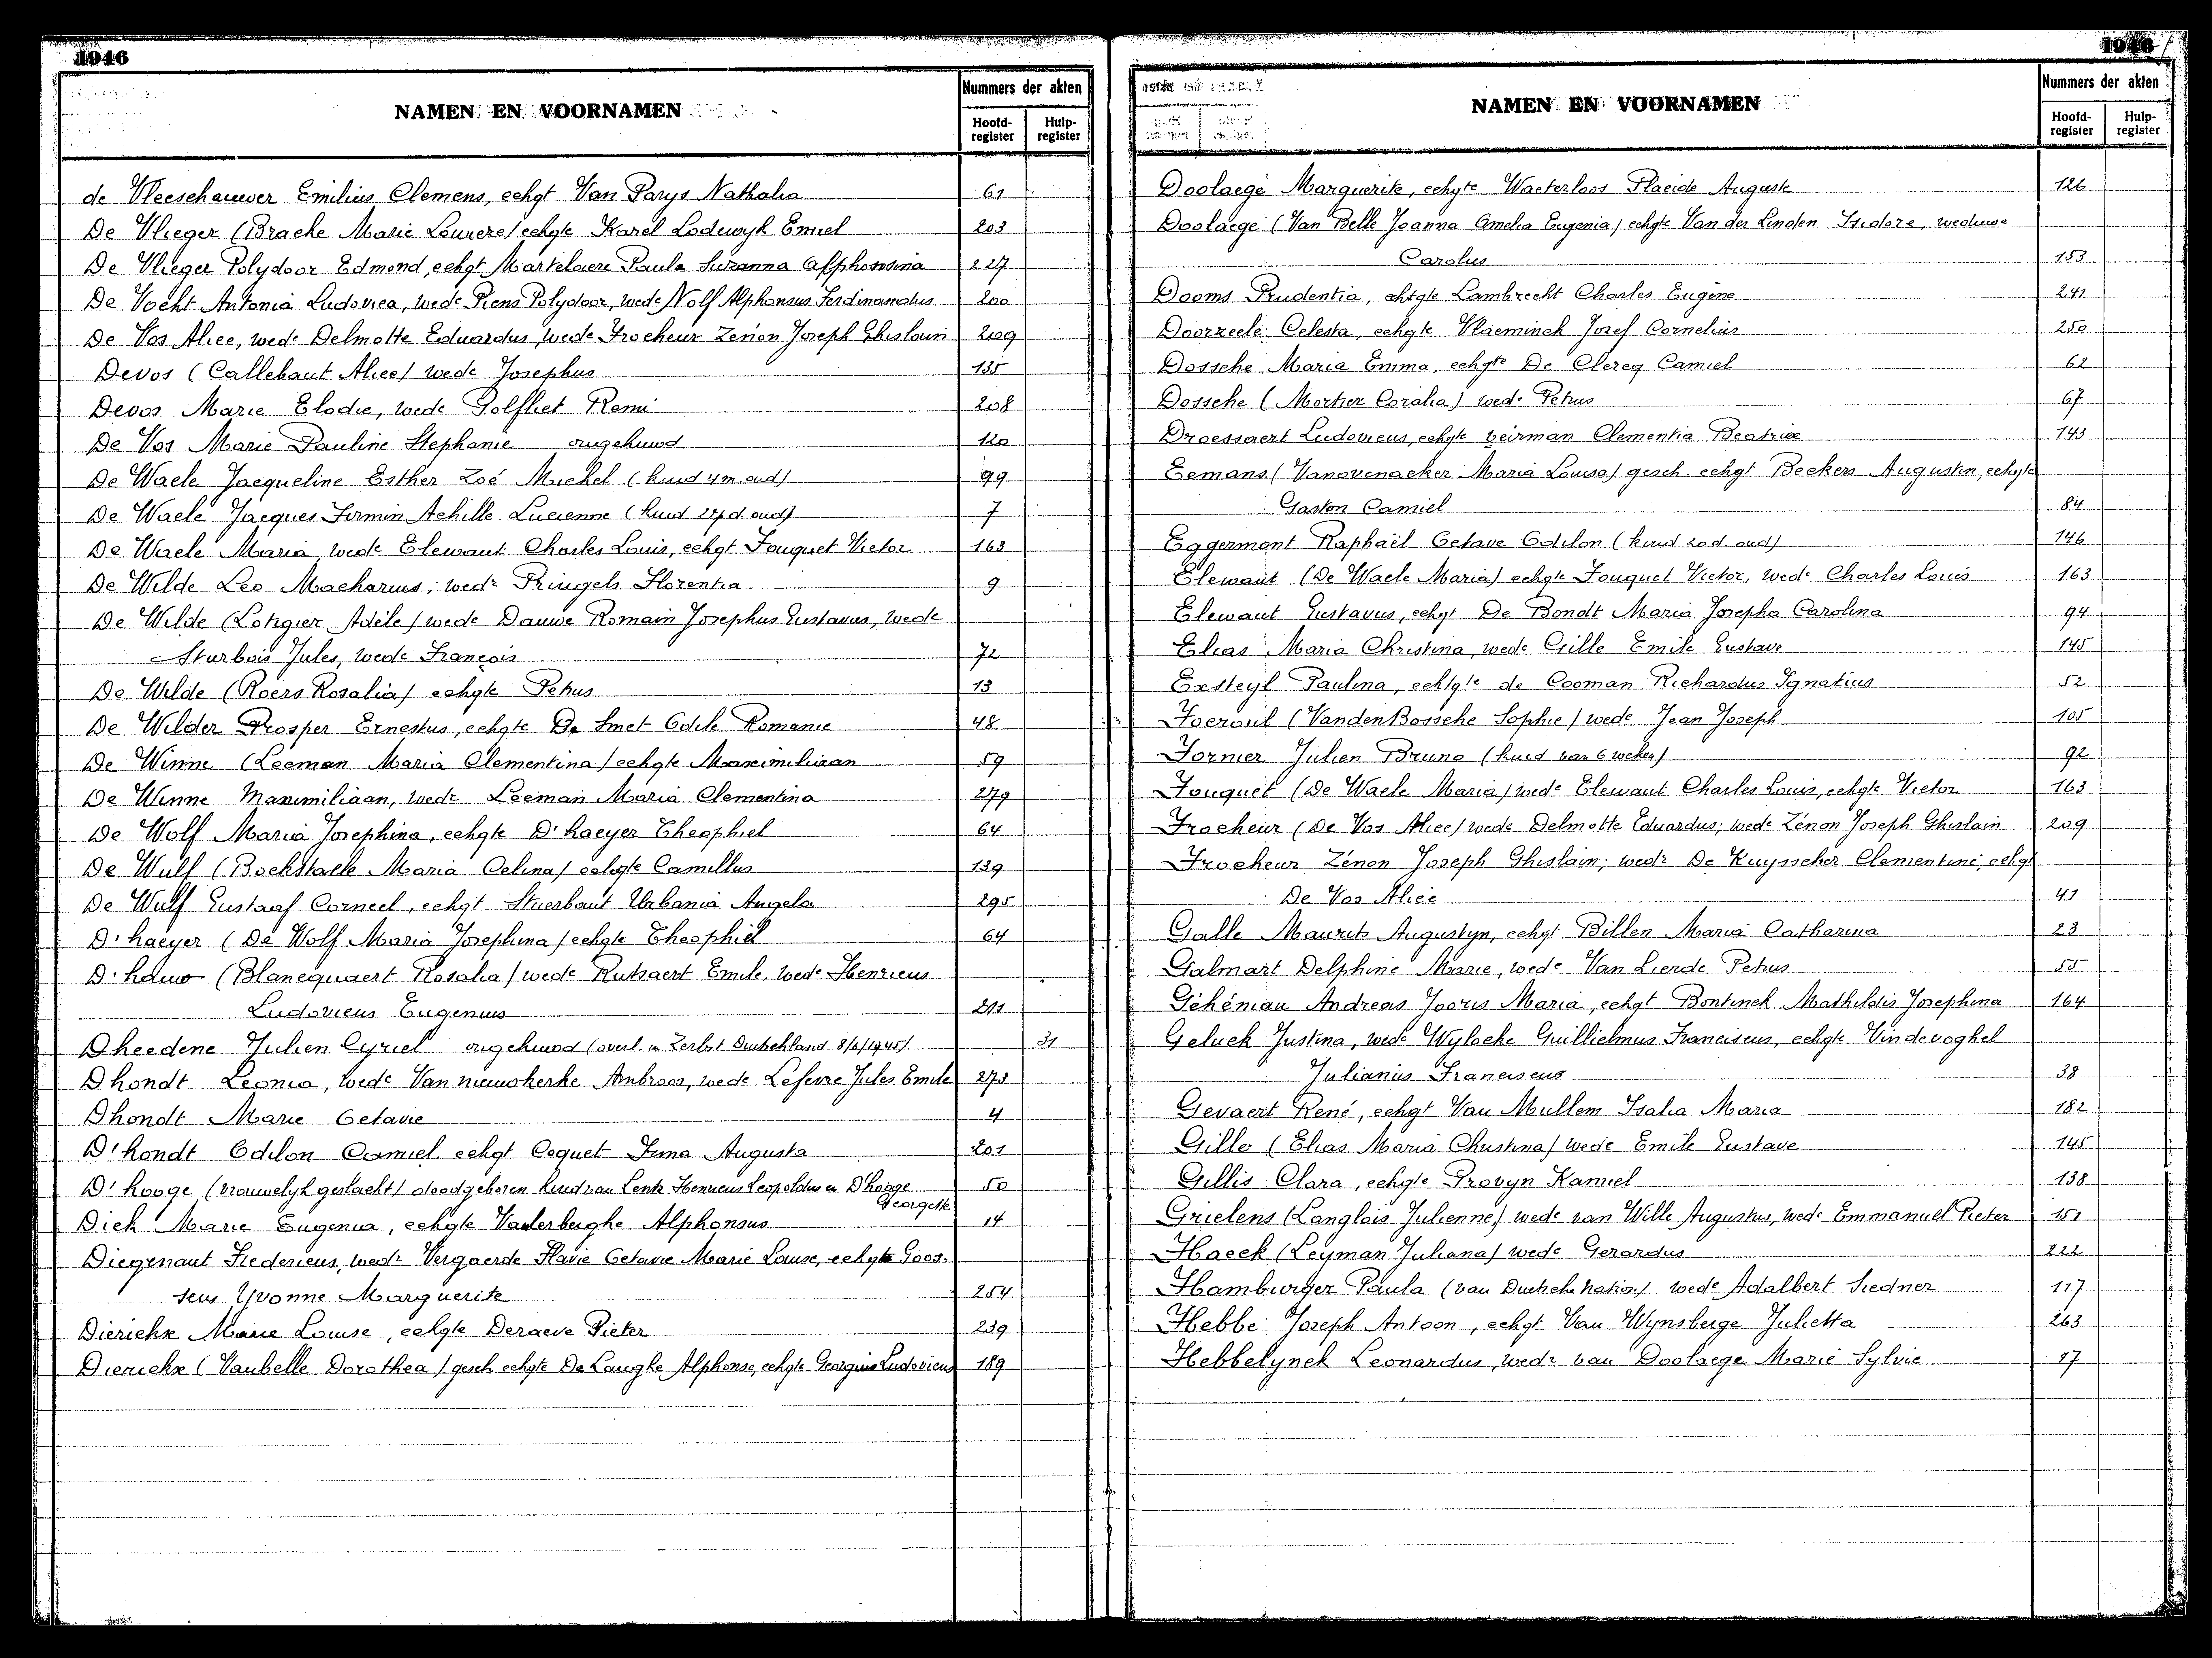 1946
NAMEN EN VOORNAMEN
Nummers der akten
Hoofd-register
Hulp-register
de Vleeschauwer Emilius Clemens, echgt Van Parys Nathalia 61
De Vlieger (Bracke Marie Louise) echgte Karel Lodewyk Emiel 203
De Vlieger Polydoor Edmond, echgt Martelaere Paula Suzanna Alphonsina 227
De Vocht Antonia Ludovica, wede Piens Polydoor, wede Nolf Alphonsus Ferdinandus 200
De Vos Alice, wede Delmotte Eduardus, wede Frocheur Zénon Joseph Ghislain 209
Devos (Callebaut Alice) wede Josephus 135
Devos Marie Elodie, wede Golfliet Remi 208
De Vos Marie Pauline Stephanie ongehuwd 120
De Waele Jacqueline Esther Zoé Michel (kind 4 m. oud) 99
De Waele Jacques Firmin Achille Lucienne (kind 27 d. oud) 7
De Waele Maria, wede Elewaut Charles Louis, echgt Fouquet Victor 163
De Wilde Leo Macharius, wedr Pringels Florentia 9
De Wilde (Lotigier Adèle) wede Dauwe Romain Josephus Gustavus, wede
Sturbois Jules, wede François 72
De Wilde (Roers Rosalia) echgte Petrus 13
De Wilder Prosper Ernestus, echgte De Smet Odile Romanie 48
De Winne (Leeman Maria Clementina) echgte Maximiliaan 59
De Winne Maximiliaan, wedr Leeman Maria Clementina 279
De Wolf Maria Josephina, echgte D'haeyer Theophiel 64
De Wulf (Bockstaele Maria Celina) echgte Camillus 139
De Wulf Gustaaf Corneel, echgt Stuerbaut Urbania Angela 295
D'haeyer (De Wolf Maria Josephina) echgte Theophiel 64
(Blancquaert Rosalia) wede Rutsaert Emile, wede Henricus
Ludovicus Eugenius 211
Dheedene Julien Cyriel ongehuwd (overl. in Zerbst Duitschland 8/6/1945) 31
Dhondt Leonia, wede Van nieuwkerke Ambroos, wede Lefevre Jules Emile 273
Dhondt Marie Octavie 4
D'hondt Odilon Camiel, echgt Coquet Irma Augusta 201
D'hooge (vrouwelyk geslacht) doodgeboren kind van Lenk Henricus Leopoldus en D'hooge Georgette 50
Dick Marie Eugenia, echgte Vanderbeughe Alphonsus 14
Diegenaut Fredericus, wedr Vergaerde Flavie Octavie Marie Louise, echgte Goos-
sens Yvonne Marguerite 254
Dierickx Marie Louise, echgte Deraeve Pieter 239
Dierickx (Vanbelle Dorothea) gesch echgte De Langhe Alphonse, echgte Georgius Ludovicus 189
1946
NAMEN EN VOORNAMEN
Nummers der akten
Hoofd-register
Hulp-register
Doolaege Marguerite, echgte Waeterloos Placide Auguste 126
Doolaege (Van Belle Joanna Amelia Eugenia) echgte Van der Linden Isidore, weduwe
Carolus 153
Dooms Prudentia, echtgte Lambrecht Charles Eugène 241
Doorzeele Celesta, echgte Vlaeminck Jozef Cornelius 250
Dossche Maria Emma, echgte De Clercq Camiel 62
Dossche (Mortier Coralia) wede Petrus 67
Droessaert Ludovicus, echgte Veirman Clementia Beatrix 143
Eemans (Vanovenacker Maria Louisa) gesch. echgt Beekers Augustin, echgte
Gaston Camiel 84
Eggermont Raphaël Octave Odilon (kind 20 d. oud) 146
Elewaut (De Waele Maria) echgte Fouquet Victor, wede Charles Louis 163
Elewaut Gustavus, echgt De Bondt Maria Josepha Carolina 94
Elias Maria Christina, wede Gille Emile Gustave 145
Exsteyl Paulina, echtgte de Cooman Richardus Ignatius 52
Foeroul (VandenBossche Sophie) wede Jean Joseph 105
Formier Julien Bruno (kind van 6 weken) 92
Fouquet (De Waele Maria) wede Elewaut Charles Louis, echgte Victor 163
Frocheur (De Vos Alice) wede Delmotte Eduardus, wede Zénon Joseph Ghislain 209
Frocheur Zénon Joseph Ghislain, wedr De Kuysscher Clementine, echgt
De Vos Alice 41
Galle Maurits Augustyn, echgt Billen Maria Catharina 23
Galmart Delphine Marie, wede Van Lierde Petrus 55
Géhéniau Andreas Jooris Maria, echgt Bontinck Mathildis Josephina 164
Geluck Justina, wede Wylocke Guillielmus Franciscus, echgte Vindevoghel
Julianus Franciscus 38
Gevaert René, echgt Van Mullem Isalia Maria 182
Gille (Elias Maria Christina) wede Emile Gustave 145
Gillis Clara, echgte Provyn Kamiel 138
Grielens (Langlois Julienne) wede van Wille Augustus, wede Emmanuel Pieter 151
Haeck (Leyman Juliana) wede Gerardus 222
Hamburger Paula (van Duitsche nation.) wede Adalbert Siedner 117
Hebbe Joseph Antoon, echgt Van Wynsberge Julietta 263
Hebbelynck Leonardus, wedr van Doolaege Marie Sylvie 27